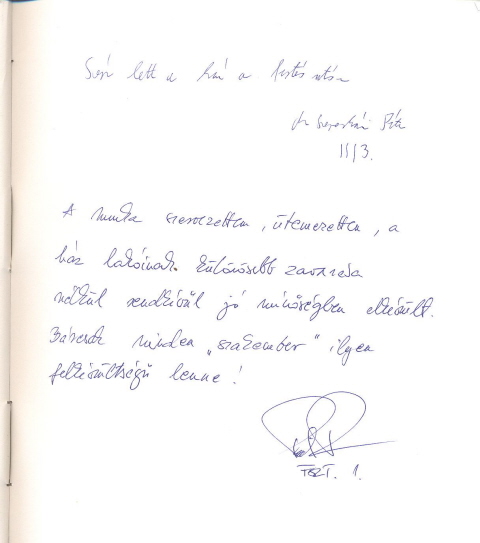 Szép lett a ház a festés után
dr Péter
II/3.
A munka szervezetten, ütemezetten, a
ház lakóinak különösebb zavarása
nélkül rendkívül jó minőségben elkészült.
Bárcsak minden „szakember" ilyen
felkészültségű lenne!
FSZT. 1.